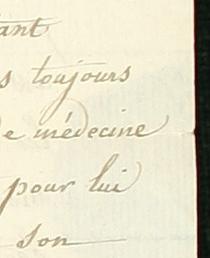 ant
s toujours
de médecine
pour lui
son